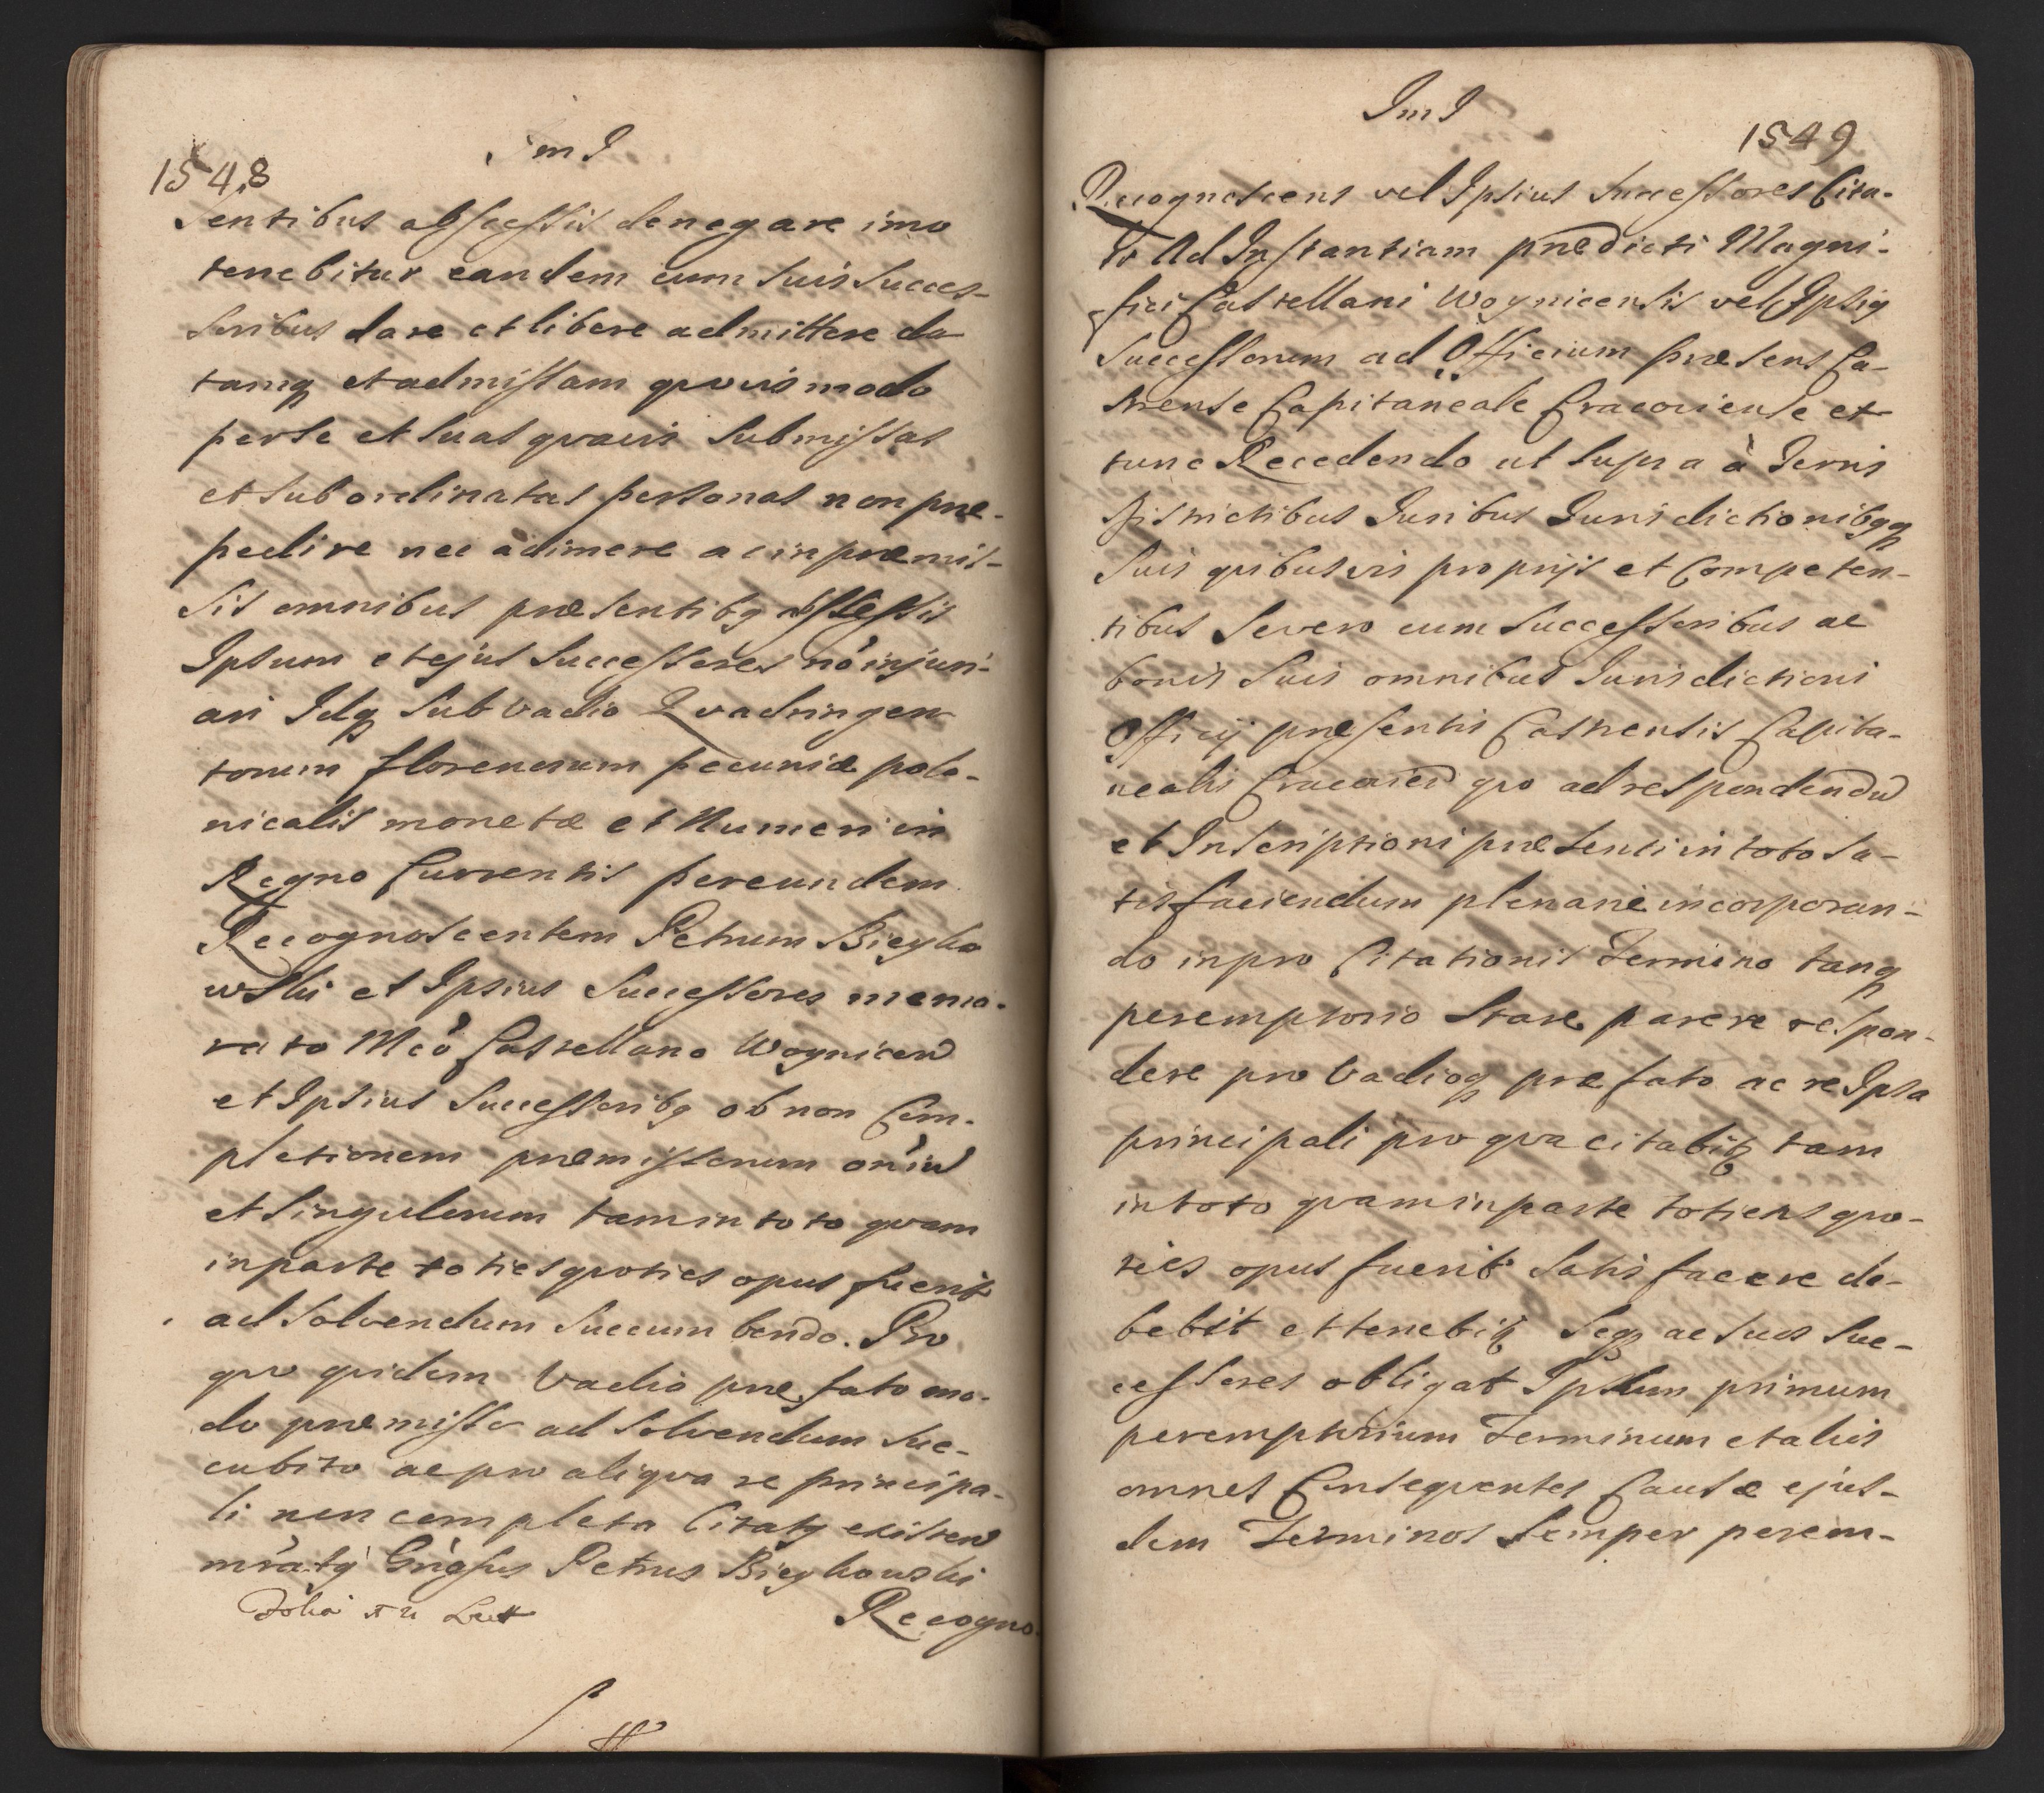 1548
ImI
sentibus absćessis denegare imo
tenebitur eandem cum suis succes-
soribus dare et libere admittere da
tamq et admissam quovis modo
per se et suas quavis submissas
et subordinatas personas non præ-
pedire nec adimere ac in præmis-
sis omnibus præsentibq absćessis
Ipsum et ejus Successores nó injuri-
ari Idq sub vadio Quadringen
torum florenorum pecuniæ polo-
nicalis monetæ et Numeri in
Regno Currentis per eundem
Recognoscentem Petrum Bieyko
wski et Ipsius Successores memo-
rato Mco Castellano Woynicen
et Ipsius Successoribq ob non Com-
pletionem præmissorum oniu
et singulorum tam in toto quam
in parte toties quoties opus fuerit
ad solvendum succumbendo. Pro
quo quidem Vadio præfato mo-
do præmisso ad solvendum suc-
cubito ac pro aliqua re principa-
li non completa Citatq existen
mratq Gnosus Petrus Bieykowski
Recogno
ImI
1549
Recognoscens vel Ipsius Successores Cita-
ti Ad Instantiam prædicti Magni-
fici Castellani Woynicensis vel Ipsiq
Successorum ad Officium præsens Ca-
strense Capitaneale Cracoviense et
tunc Recedendo ut supra à Terris
Districtibus Juribus Jurisdictionibqq
suis quibusvis proprijs et Competen-
tibus se vero cum Successoribus ac
bonis suis omnibus Jurisdictioni
Officij præsentis Castrensis Capita-
nealis Cracovien quo ad respondendu
et Inscriptioni præsenti in toto sa-
tisfaciendum plenarie incorporan-
do in pro Citationis Termino tanq
peremptorio Stare parere respon-
dere pro Vadioq præfato ac re Ipsa
principali pro qua citabitq tam
in toto quam in parte totiens quo-
ties opus fuerit satisfacere de-
bebit et tenebitq Seq ac suos Suc-
cessores obligat Ipsum primum
peremptorium Terminum et alios
omnes Consequentes Causæ ejus-
dem Terminos semper perem-